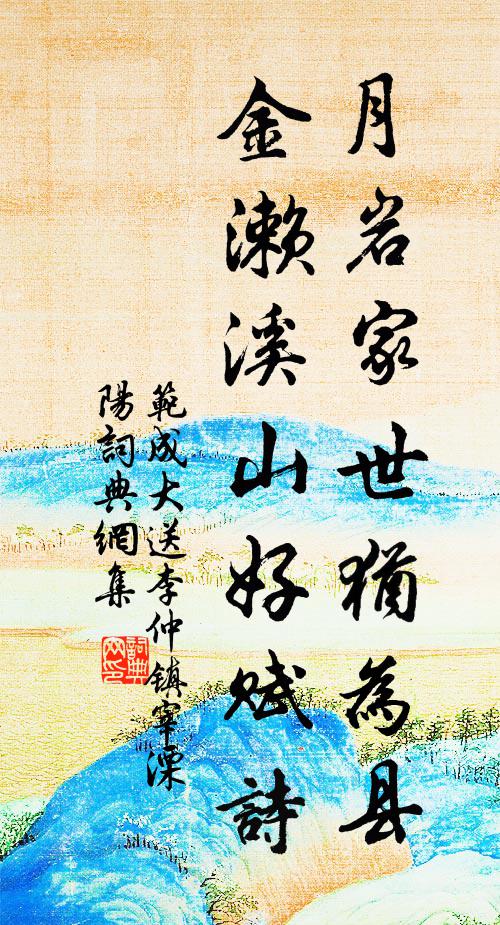 月岩家世犹為县
金濑溪山好赋詩
範成大送李仲镇宰溧
陽詞典網集
詞典网印